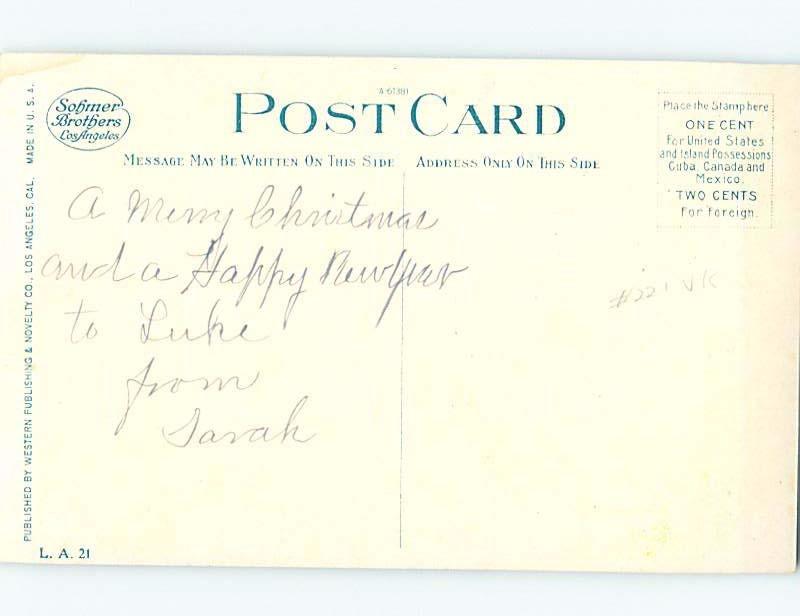 A-61381
Sohmer
Brothers
Los Angeles
POST CARD
MESSAGE MAY BE WRITTEN ON THIS SIDE
ADDRESS ONLY ON THIS SIDE
Place the Stamp here
ONE CENT
For United States
and Island Possessions
Cuba, Canada and
Mexico.
TWO CENTS
For Foreign.
A Merry Christmas
and a Happy New Year
to Luke
from
Sarah
#221 VK
PUBLISHED BY WESTERN PUBLISHING & NOVELTY CO., LOS ANGELES, CAL. MADE IN U.S.A.
L. A. 21